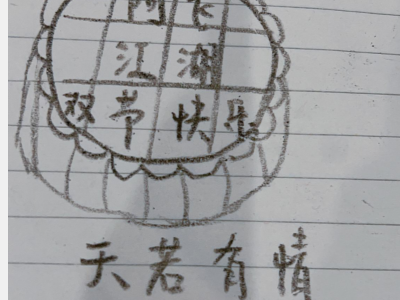 阿飞
江湖
双节快乐
天若有情